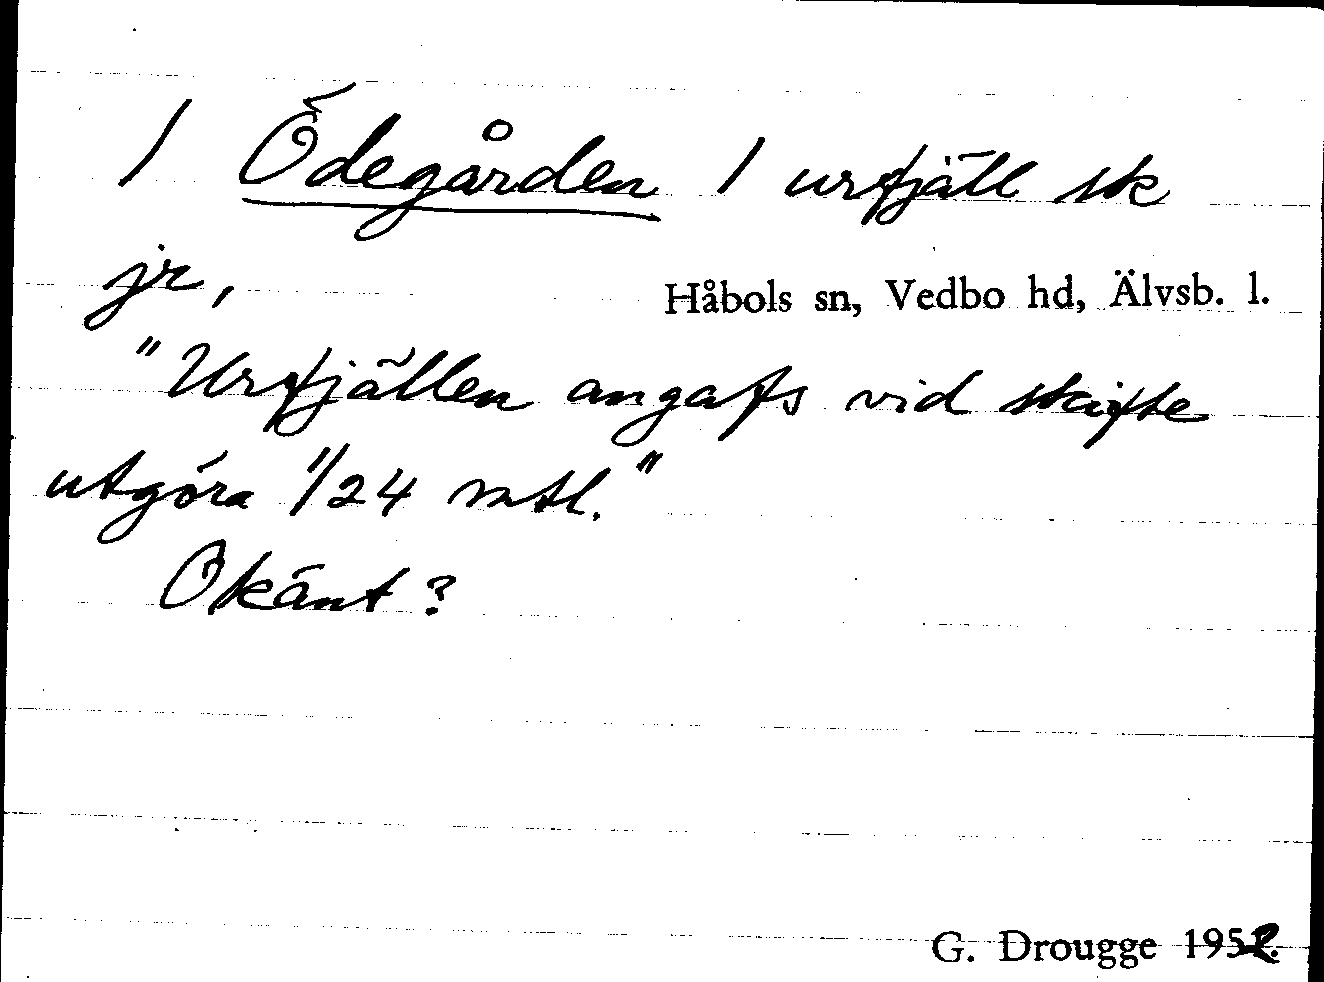 / Ödegården / urfjäll sk
jr,
Håbols sn, Vedbo hd, Älvsb. l.
"Urfjällen angafs vid skifte
utgöra 1/24 mtl."
Okänt?
G. Drougge 1952.